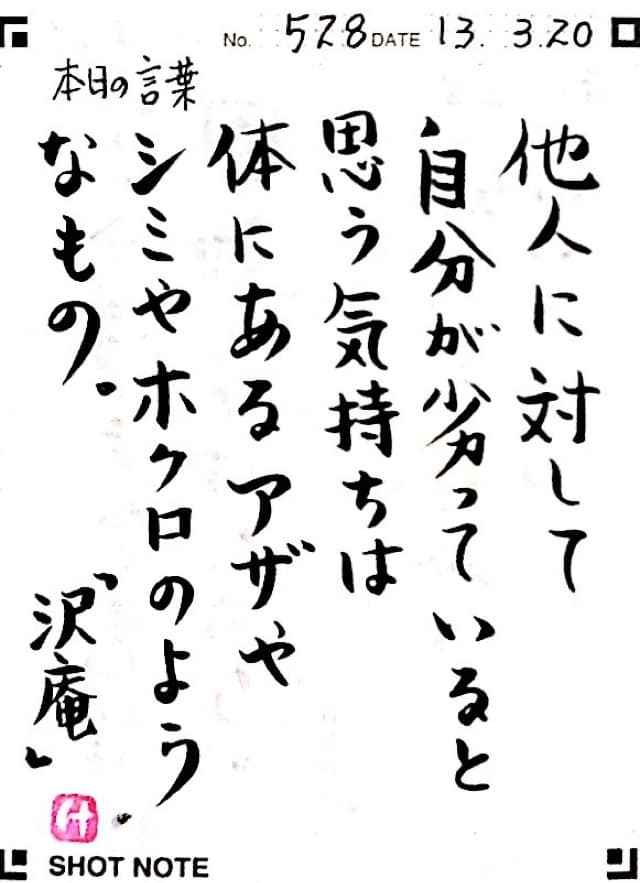 No. 528 DATE 13. 3.20
本日の言葉
他人に対して
自分が劣っていると
思う気持ちは
体にあるアザや
シミやホクロのよう
なもの。
「沢庵」
SHOT NOTE